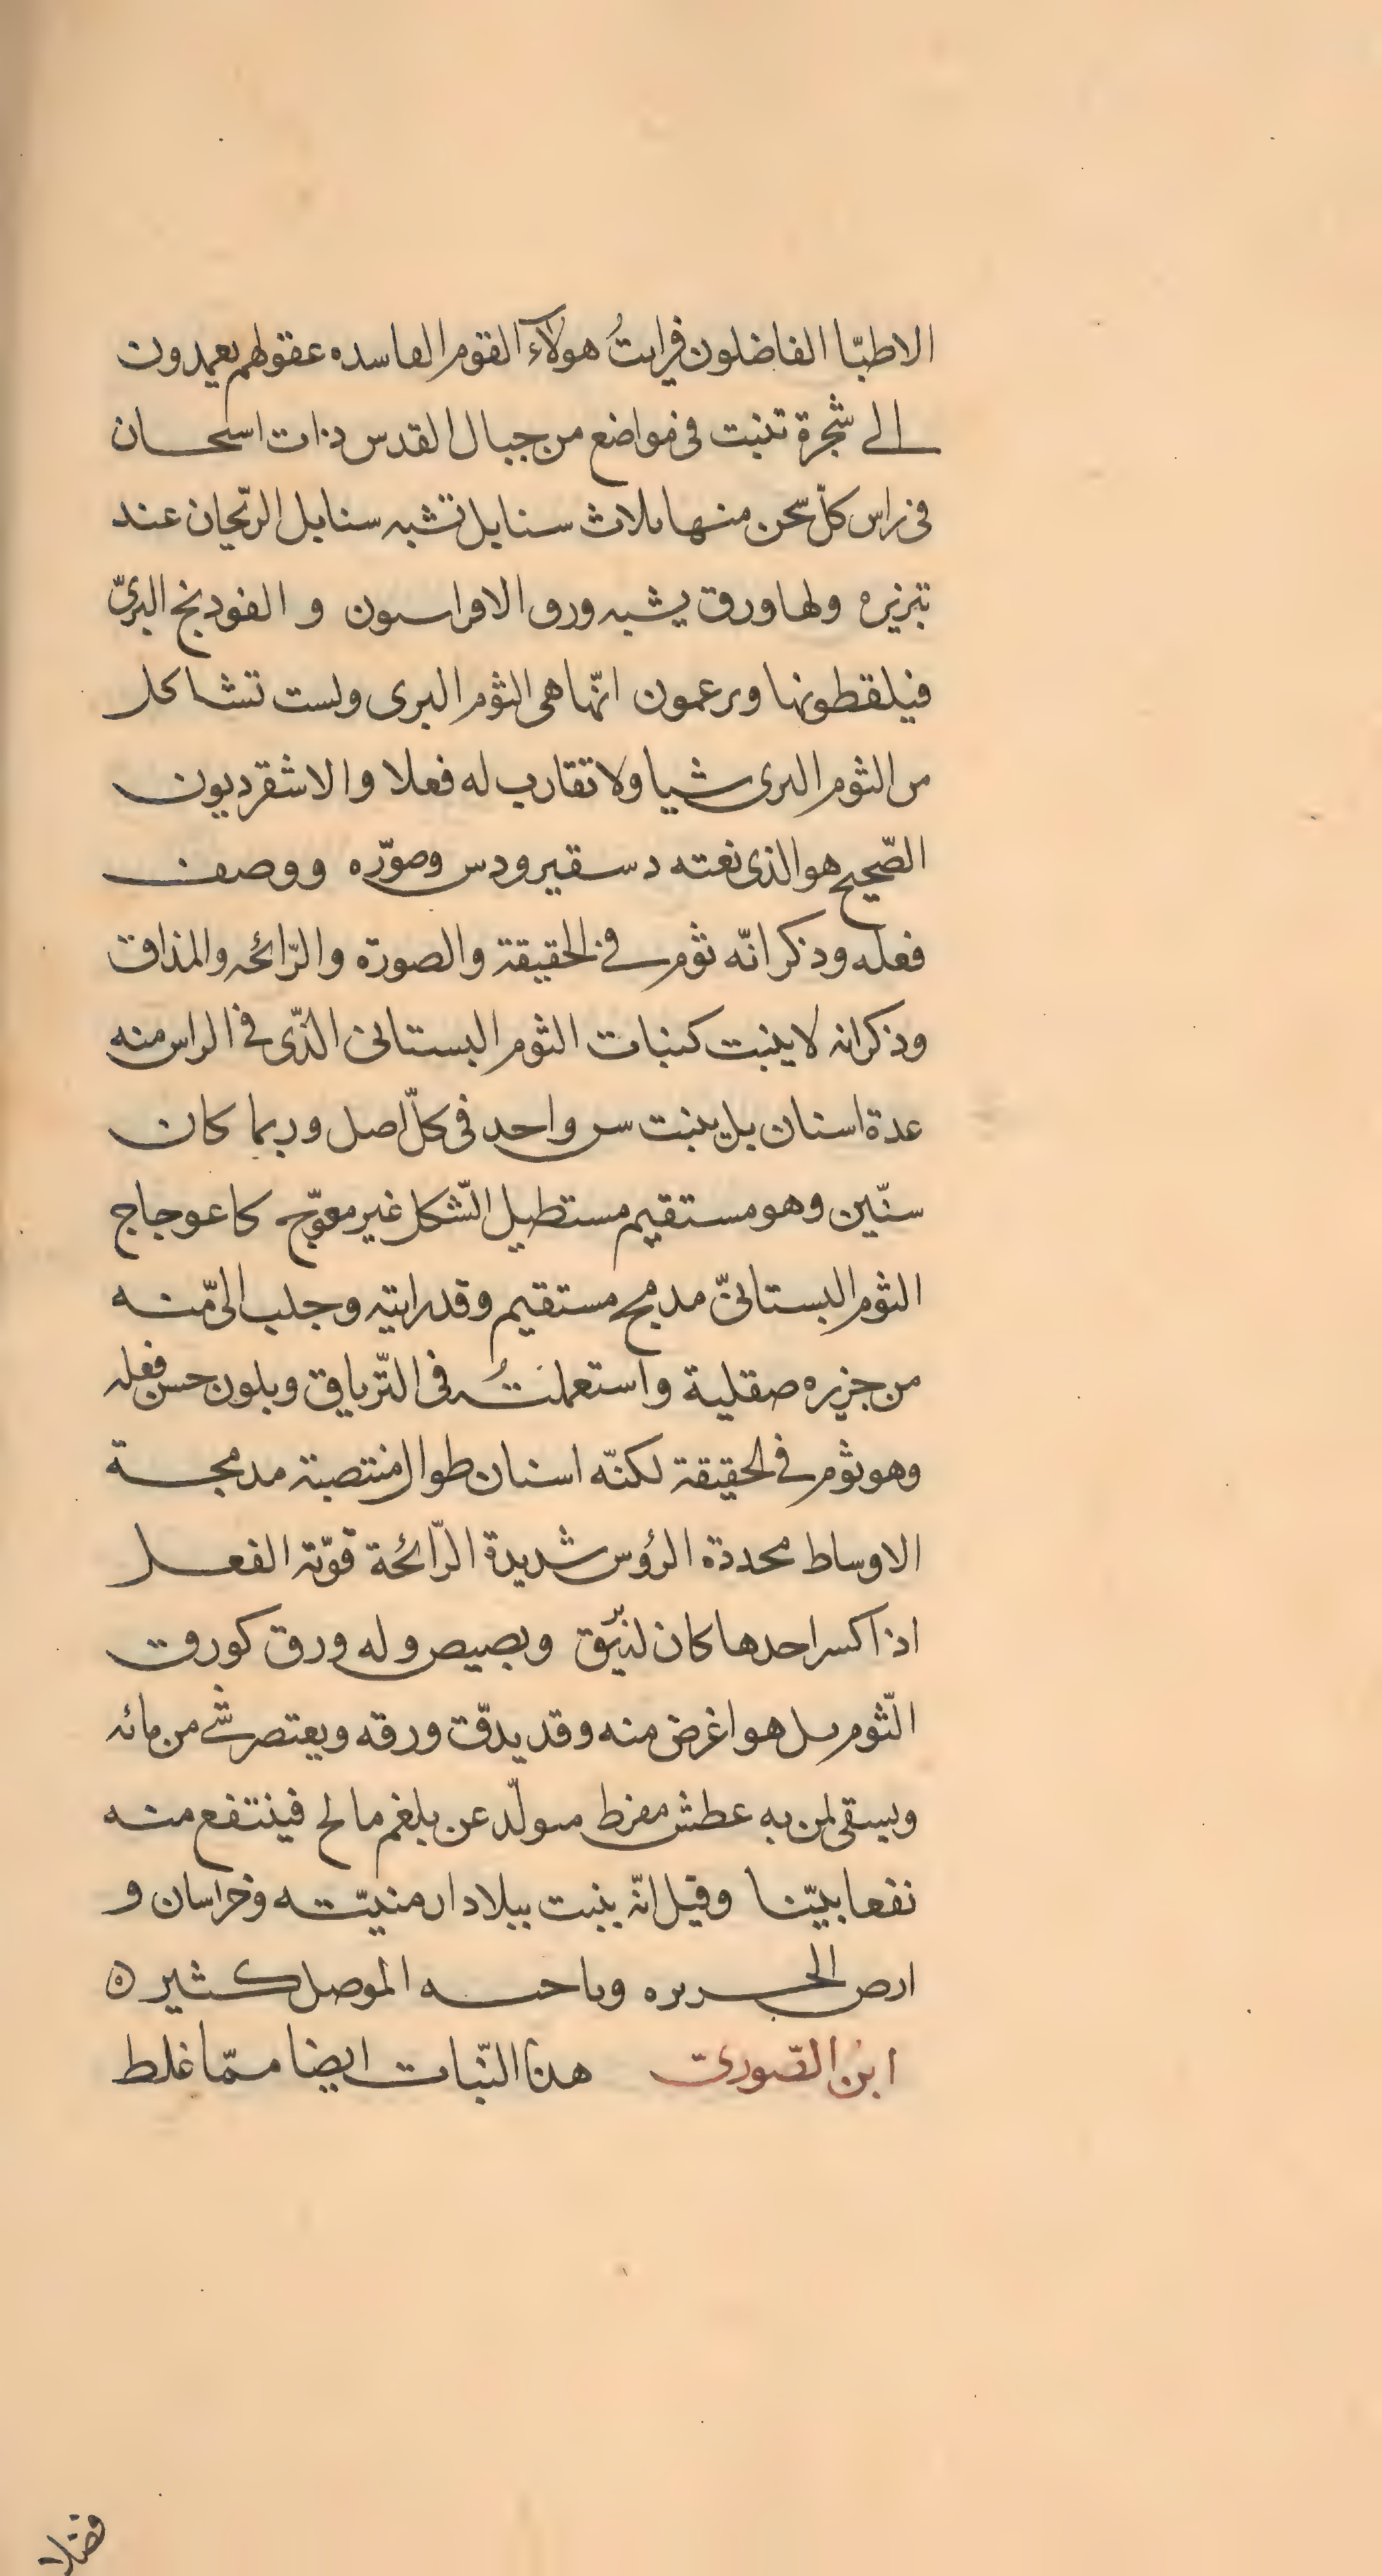 الاطبّا الفاضلون فرايتُ هولآء القوم الفاسده عقولهم يعمدون
الى شجرة تنبت فى مواضع من جبال القدس ذات اسحان
فى راس كلّ سحن منها ثلاث سنابل تشبه سنابل الريحان عند
تبزيره ولها ورق يشبه ورق الافراسيون و الفودنج البرىّ
فيلقطونها ويزعمون انّها هى الثوم البرى وليست تشاكل
من الثوم البرى شيا ولا تقارب له فعلا والاشقرديون
الصّحيح هو الذى نعته دسقيرودس وصوّره ووصف
فعله وذكر انّه ثوم فى الحقيقة والصورة والرّائحه والمذاق
وذكر انه لا ينبت كنبات الثوم البستانى الذّى فى الراس منه
عدة اسنان بل ينبت سن واحد فى كلّ اصل وربما كان
سنّين وهو مستقيم مستطيل الشّكل غير معوّج كاعوجاج
الثوم البستانىّ مدمج مستقيم وقد رايته وجلب الىّ منه
من جزيره صقلية واستعملتُه فى التّرياق وبلون حسن فعله
وهو ثوم فى الحقيقة لكنّه اسنان طوال منتصبة مدمجة
الاوساط محددة الرؤس شديدة الرّائحة قوّية الفعل
اذا كسر احدها كان لزيّق وبصيص وله ورق كورق
الثّوم بل هو اغرض منه وقد يدقّ ورقه ويعتصر شى من مائه
ويسقى لمن به عطش مفرط متولّد عن بلغم مالح فينتفع منه
نفعا بيّنا وقيل انّه ينبت ببلاد ارمنيّته وخراسان و
ارض الجزيره وباحيه الموصل كثير ه
ابن الصّورى هذا النّبات ايضا ممّا غلط
فضلا